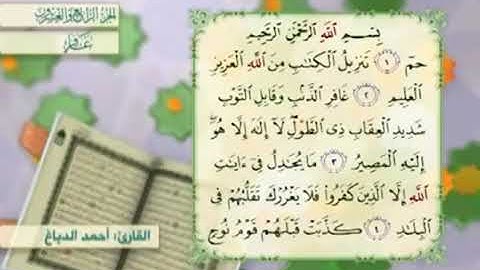 الجزء الرابع والعشرون
غافر
بِسْمِ اللَّهِ الرَّحْمَٰنِ الرَّحِيمِ
حمٓ ١ تَنزِيلُ الْكِتَٰبِ مِنَ اللَّهِ الْعَزِيزِ
الْعَلِيمِ ٢ غَافِرِ الذَّنۢبِ وَقَابِلِ التَّوْبِ
شَدِيدِ الْعِقَابِ ذِى الطَّوْلِ لَآ إِلَٰهَ إِلَّا هُوَ
إِلَيْهِ الْمَصِيرُ ٣ مَا يُجَٰدِلُ فِىٓ ءَايَٰتِ
اللَّهِ إِلَّا الَّذِينَ كَفَرُوا۟ فَلَا يَغْرُرْكَ تَقَلُّبُهُمْ فِى
الْبِلَٰدِ ٤ كَذَّبَتْ قَبْلَهُمْ قَوْمُ نُوحٍ
القارئ: أحمد الدباغ